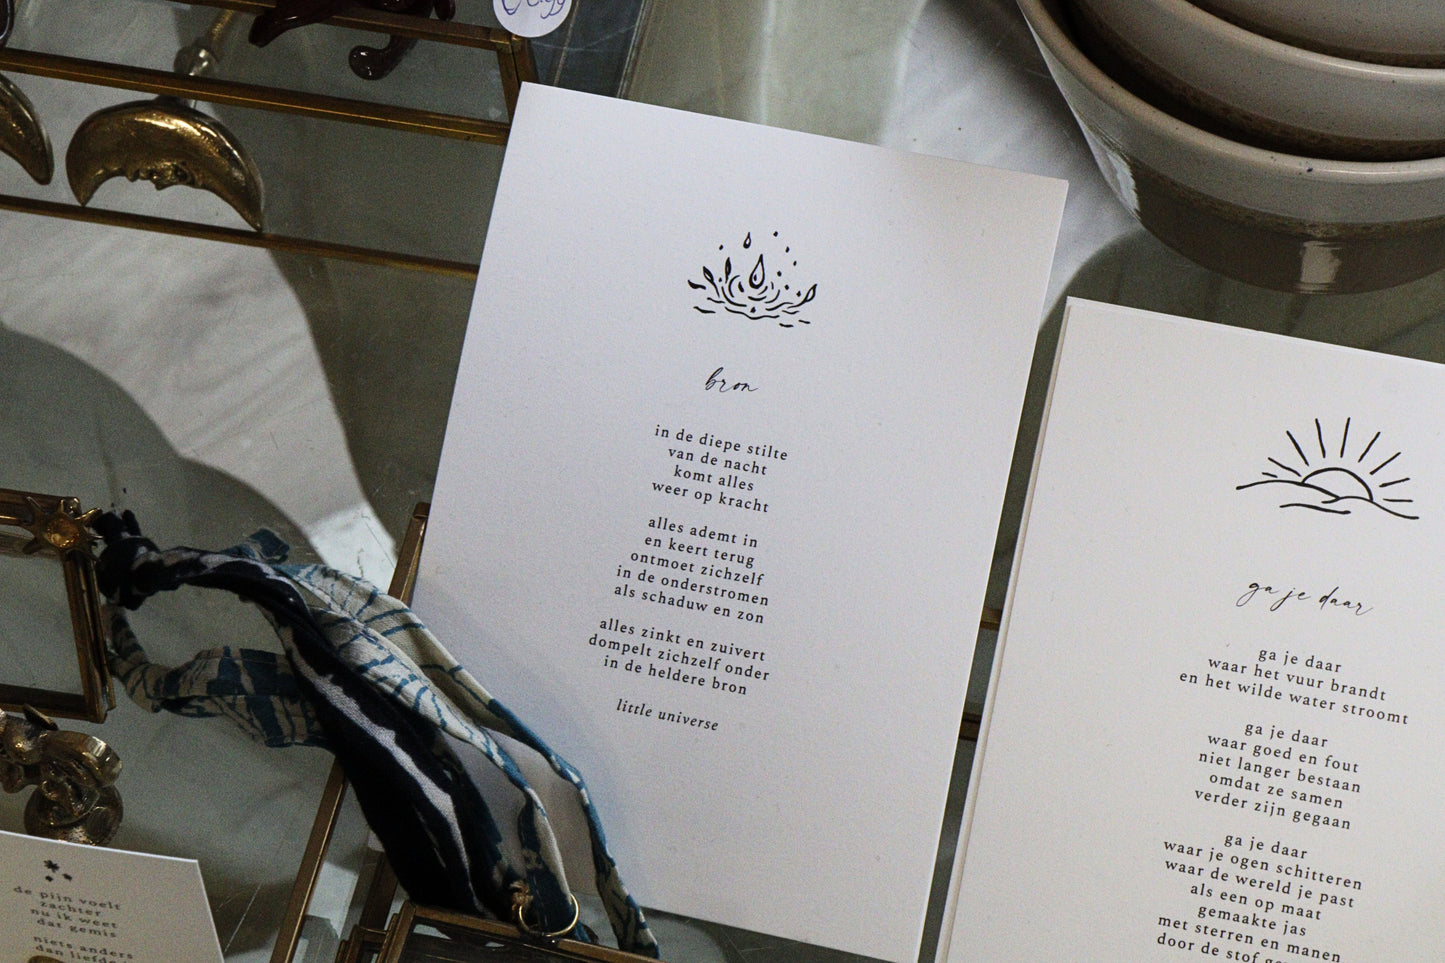 bron
in de diepe stilte
van de nacht
komt alles
weer op kracht
alles ademt in
en keert terug
ontmoet zichzelf
in de onderstromen
als schaduw en zon
alles zinkt en zuivert
dompelt zichzelf onder
in de heldere bron
little universe
ga je daar
ga je daar
waar het vuur brandt
en het wilde water stroomt
ga je daar
waar goed en fout
niet langer bestaan
omdat ze samen
verder zijn gegaan
ga je daar
waar je ogen schitteren
waar de wereld je past
als een op maat
gemaakte jas
met sterren en manen
door de stof
de pijn voelt
zachter
nu ik weet
dat gemis
niets anders
dan liefde